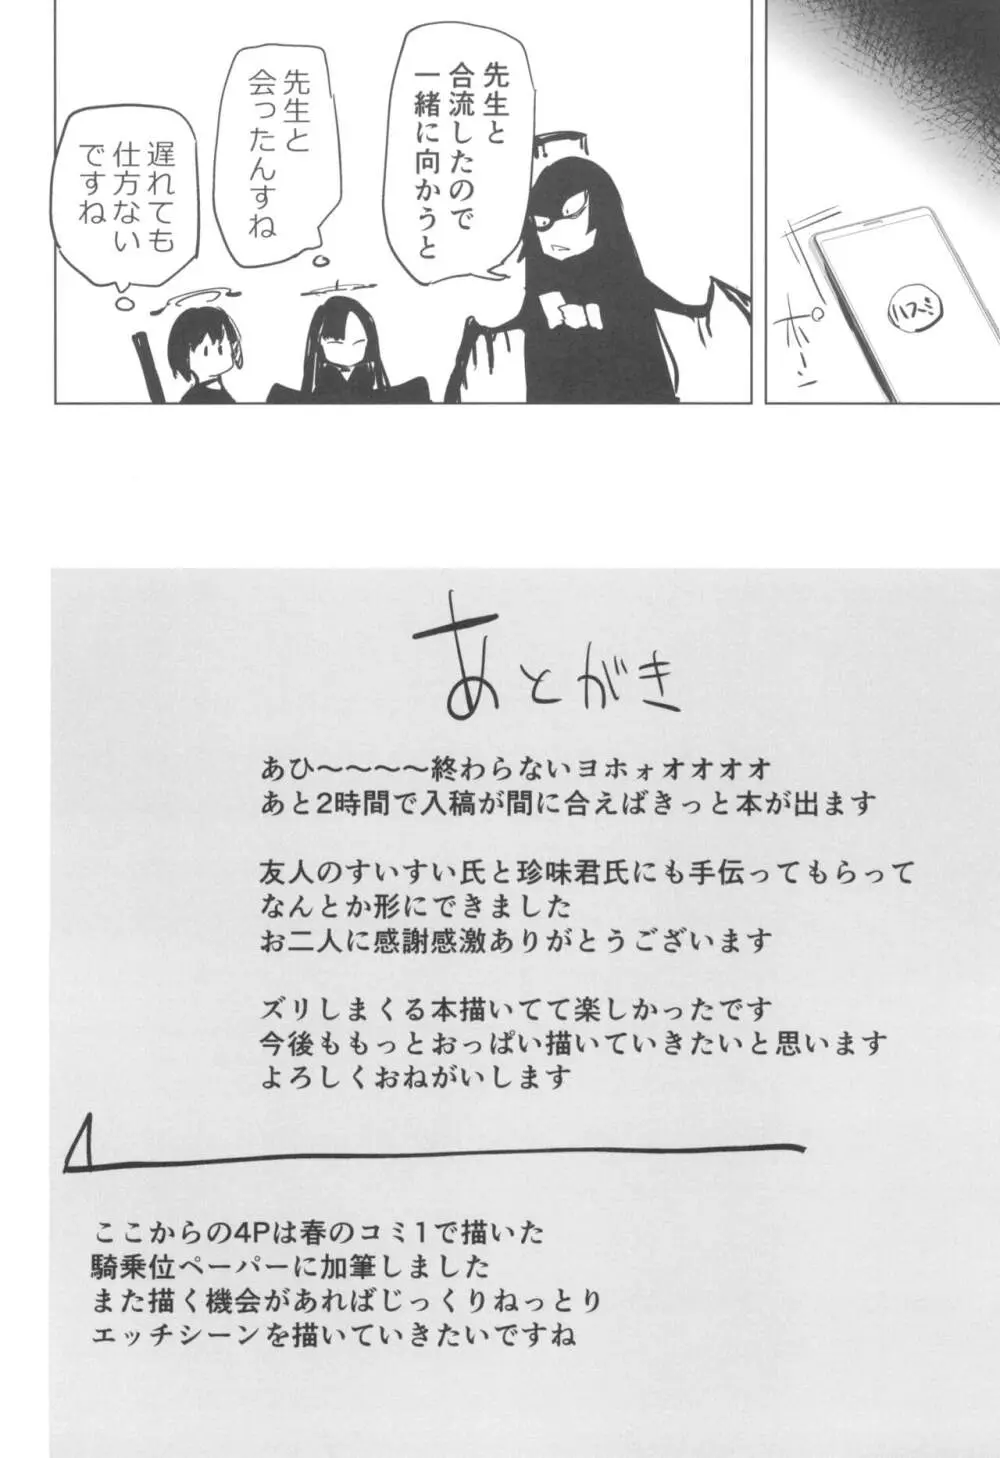 ハスミ
ポーン
先生と
合流したので
一緒に向かうと
先生と
会ったんすね
遅れても
仕方ない
ですね
あとがき
あひ～～～～終わらないヨホォオオオオ
あと2時間で入稿が間に合えばきっと本が出ます
友人のすいすい氏と珍味君氏にも手伝ってもらって
なんとか形にできました
お二人に感謝感激ありがとうございます
ズリしまくる本描いてて楽しかったです
今後ももっとおっぱい描いていきたいと思います
よろしくおねがいします
ここからの4Pは春のコミ1で描いた
騎乗位ペーパーに加筆しました
また描く機会があればじっくりねっとり
エッチシーンを描いていきたいですね